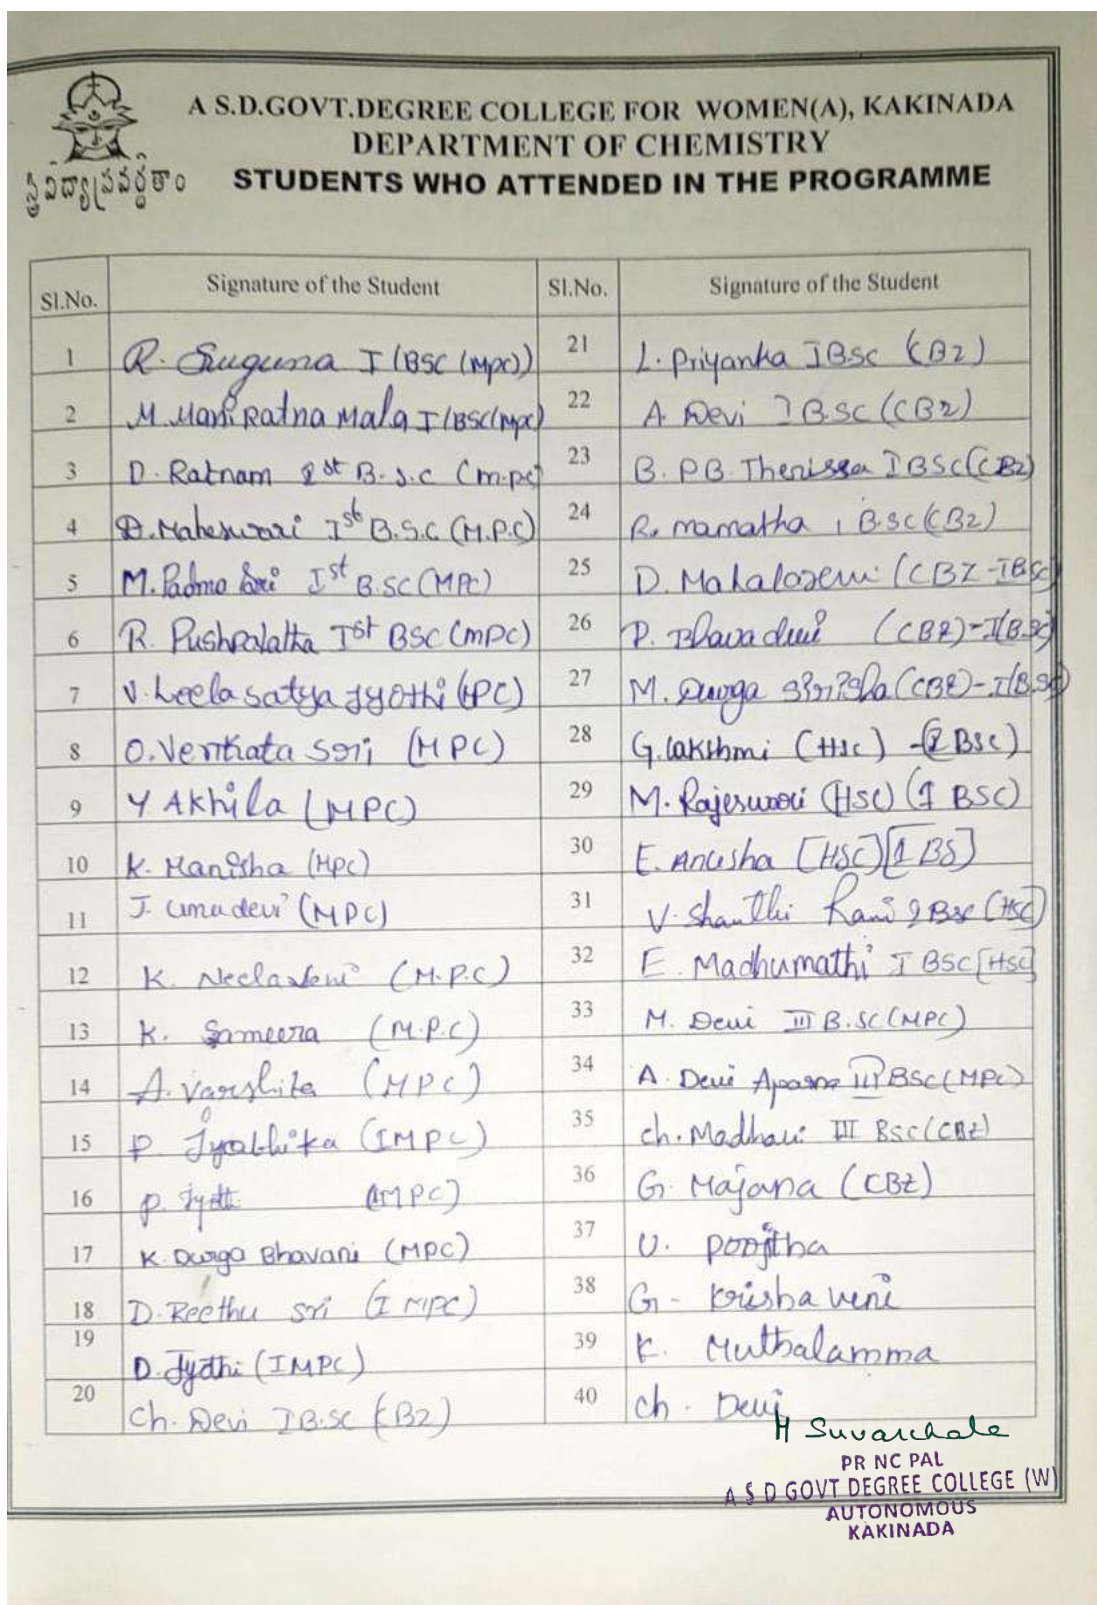 A S.D.GOVT.DEGREE COLLEGE FOR WOMEN(A), KAKINADA
DEPARTMENT OF CHEMISTRY
స్త్రీ విద్యా ప్రవర్ధతాం
STUDENTS WHO ATTENDED IN THE PROGRAMME
Sl.No. Signature of the Student Sl.No. Signature of the Student
1 R. Suguna I (BSC (MPC)) 21 L. Priyanka I BSc (CBZ)
2 M. Mani Ratna Mala I (BSC(MPC) 22 A. Devi I B.SC (CBZ)
3 D. Ratnam 1st B.S.C (M.PC) 23 B. P.B. Therissa I BSC (CBZ)
4 D. Maheswari Ist B.S.C (M.P.C) 24 R. Mamatha I B.SC (CBZ)
5 M. Padma Sri Ist B.SC (MPC) 25 D. Mahalaxmi (CBZ - I BSC)
6 R. Pushpalatha Ist BSC (MPC) 26 P. (CBZ)-I(B.SC)
7 V. Leela Satya Jyothi (MPC) 27 M. Durga Sirisha (CBZ)-I(B.SC)
8 O. Venkata Sri (MPC) 28 G. Lakshmi (HSC) -(I BSC)
9 Y Akhila (MPC) 29 M. Rajeswari (HSC) (I BSC)
10 K. Manisha (MPC) 30 E. Anusha [HSC] [I BS]
11 J. Umadevi (MPC) 31 V. Shanthi Rani I BSC (HSC)
12 K. Neelaveni (M.P.C) 32 E. Madhumathi I BSC [HSC]
13 K. Sameera (M.P.C) 33 M. Devi III B.SC (MPC)
14 A. Varshita (MPC) 34 A. Devi Aparna III BSC (MPC)
15 P. (IMPC) 35 Ch. Madhavi III BSC (CBZ)
16 P. (IMPC) 36 G. Majana (CBZ)
17 K. Durga Bhavani (MPC) 37 U. Poojitha
18 D. Reethu Sri (I MPC) 38 G- Krishaveni
19 D. Jyothi (IMPC) 39 K. Muthalamma
20 Ch. Devi I B.SC (CBZ) 40 Ch. Devi
M Suvarchala
PR NC PAL
A S D GOVT DEGREE COLLEGE (W)
AUTONOMOUS
KAKINADA